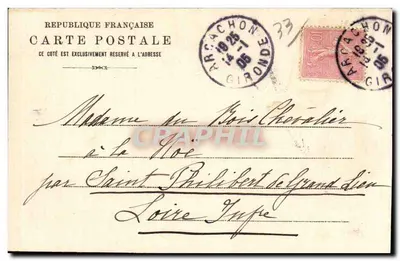 RÉPUBLIQUE FRANÇAISE
CARTE POSTALE
CE COTÉ EST EXCLUSIVEMENT RÉSERVÉ A L'ADRESSE
ARCACHON
GIRONDE
33
ARCACHON
Madame du Bois Chevalier
à la Noë
par Saint Philibert de Grand Lieu
Loire Infre
CARTEPOSTALE